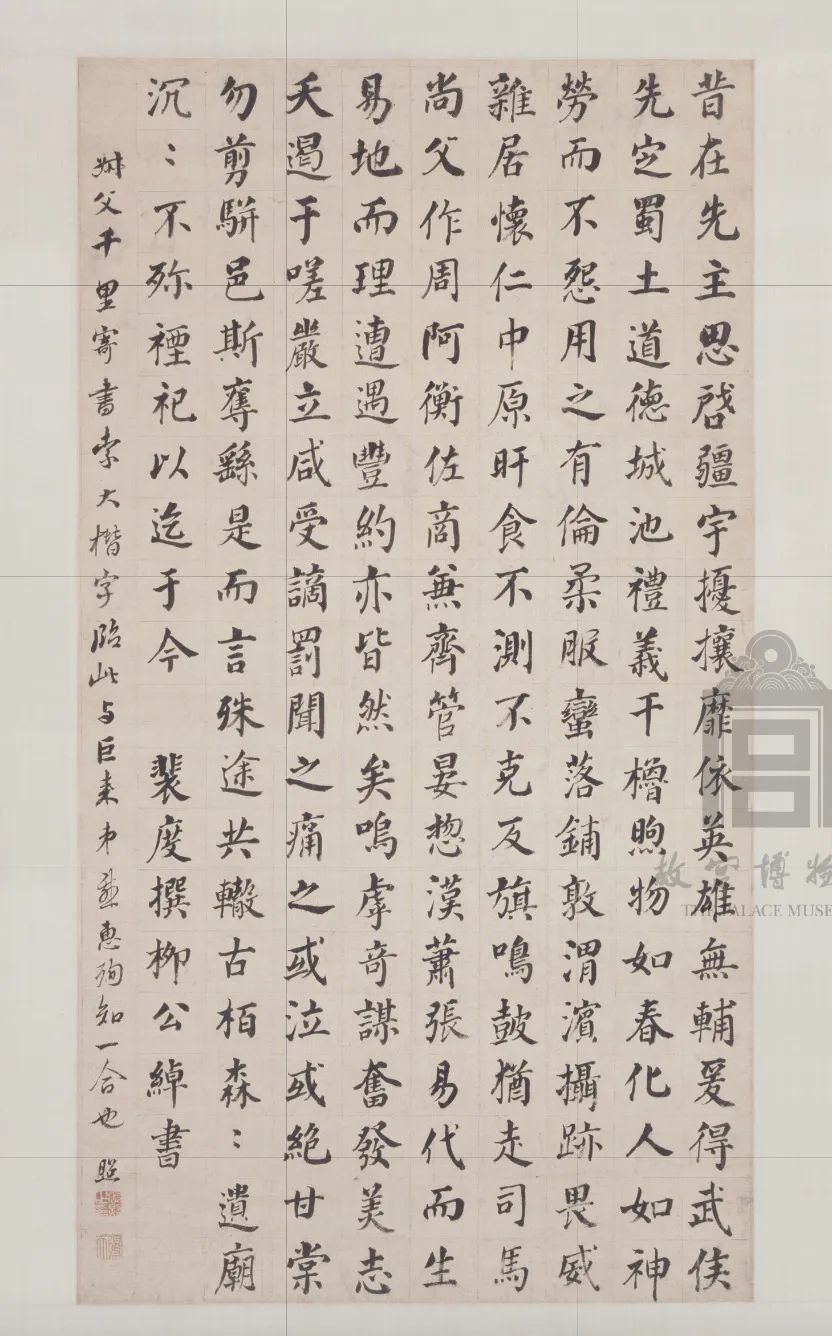 昔在先主思啓疆宇擾攘靡依英雄無輔爰得武侯
先定蜀土道德城池禮義干櫓煦物如春化人如神
勞而不怨用之有倫柔服蠻落鋪敦渭濱攝跡畏威
雜居懷仁中原旰食不測不克反旗鳴鼓猶走司馬
尚父作周阿衡佐商兼齊管晏惣漢蕭張易代而生
易地而理遭遇豐約亦皆然矣嗚虖奇謀奮發美志
夭遏于嗟嚴立咸受謫罰聞之痛之或泣或絶甘棠
勿剪駢邑斯奪繇是而言殊途共轍古栢森〻遺廟
沉〻不殄禋祀以迄于今 裴度撰柳公綽書
叔父千里寄書索大楷字臨此与巨来弟惠殉知一合也 照
故宫博物
THE PALACE MUSE